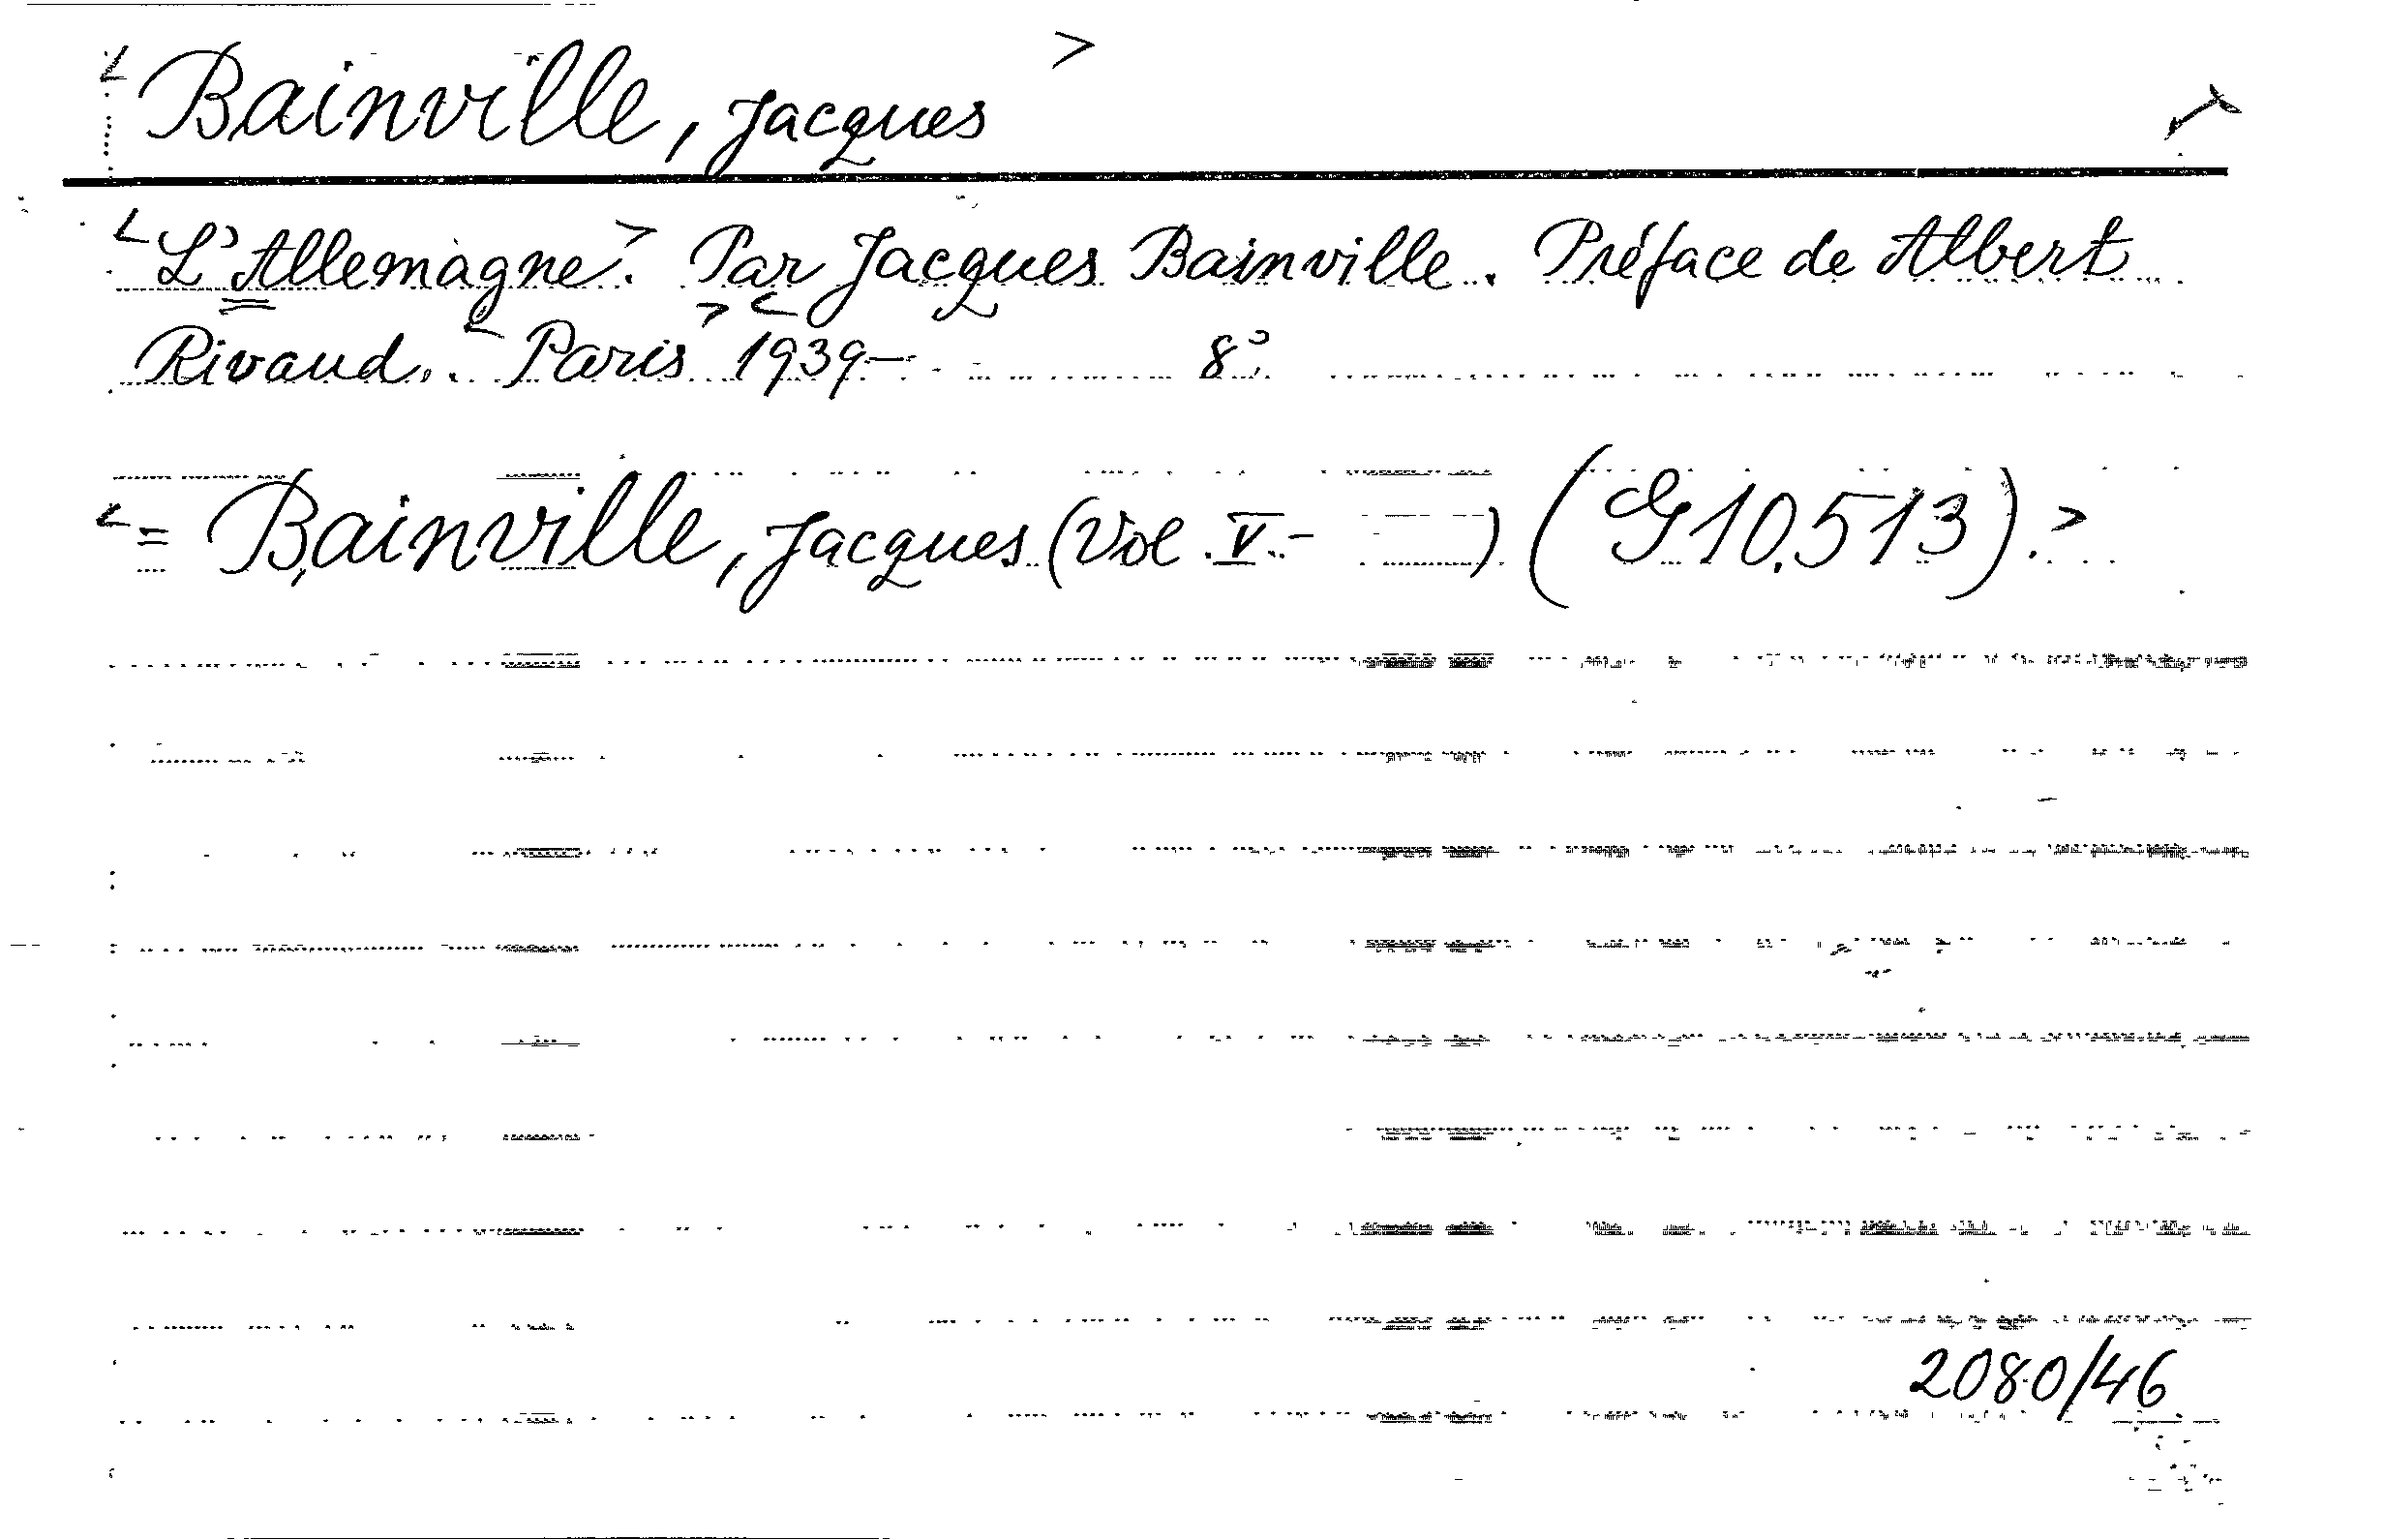 <Bainville, Jacques>
<L'Allemagne>. Par Jacques Bainville. Préface de Albert
Rivaud. <Paris> <1939— 8°.
<= Bainville, Jacques (Vol. V.- ) (G10.513).>
2080/46